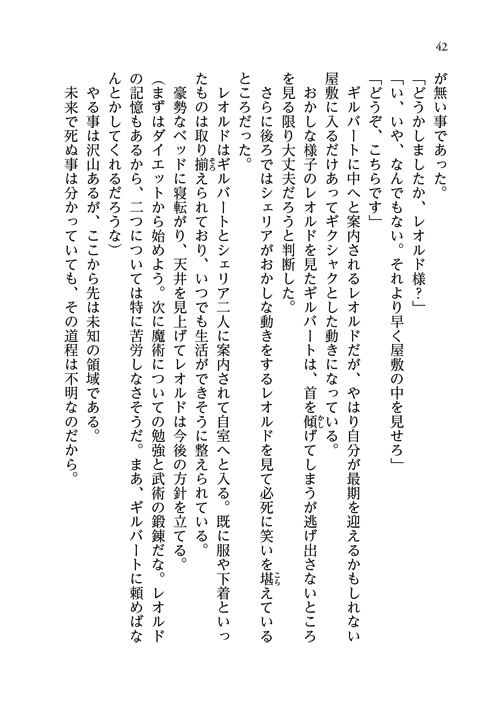 42
が無い事であった。
「どうかしましたか、レオルド様？」
「い、いや、なんでもない。それより早く屋敷の中を見せろ」
「どうぞ、こちらです」
ギルバートに中へと案内されるレオルドだが、やはり自分が最期を迎えるかもしれない
屋敷に入るだけあってギクシャクとした動きになっている。
おかしな様子のレオルドを見たギルバートは、首を傾げてしまうが逃げ出さないところ
を見る限り大丈夫だろうと判断した。
さらに後ろではシェリアがおかしな動きをするレオルドを見て必死に笑いを堪えている
ところだった。
レオルドはギルバートとシェリア二人に案内されて自室へと入る。既に服や下着といっ
たものは取り揃えられており、いつでも生活ができそうに整えられている。
豪勢なベッドに寝転がり、天井を見上げてレオルドは今後の方針を立てる。
（まずはダイエットから始めよう。次に魔術についての勉強と武術の鍛錬だな。レオルド
の記憶もあるから、二つについては特に苦労しなさそうだ。まあ、ギルバートに頼めばな
んとかしてくれるだろうな）
やる事は沢山あるが、ここから先は未知の領域である。
未来で死ぬ事は分かっていても、その道程は不明なのだから。